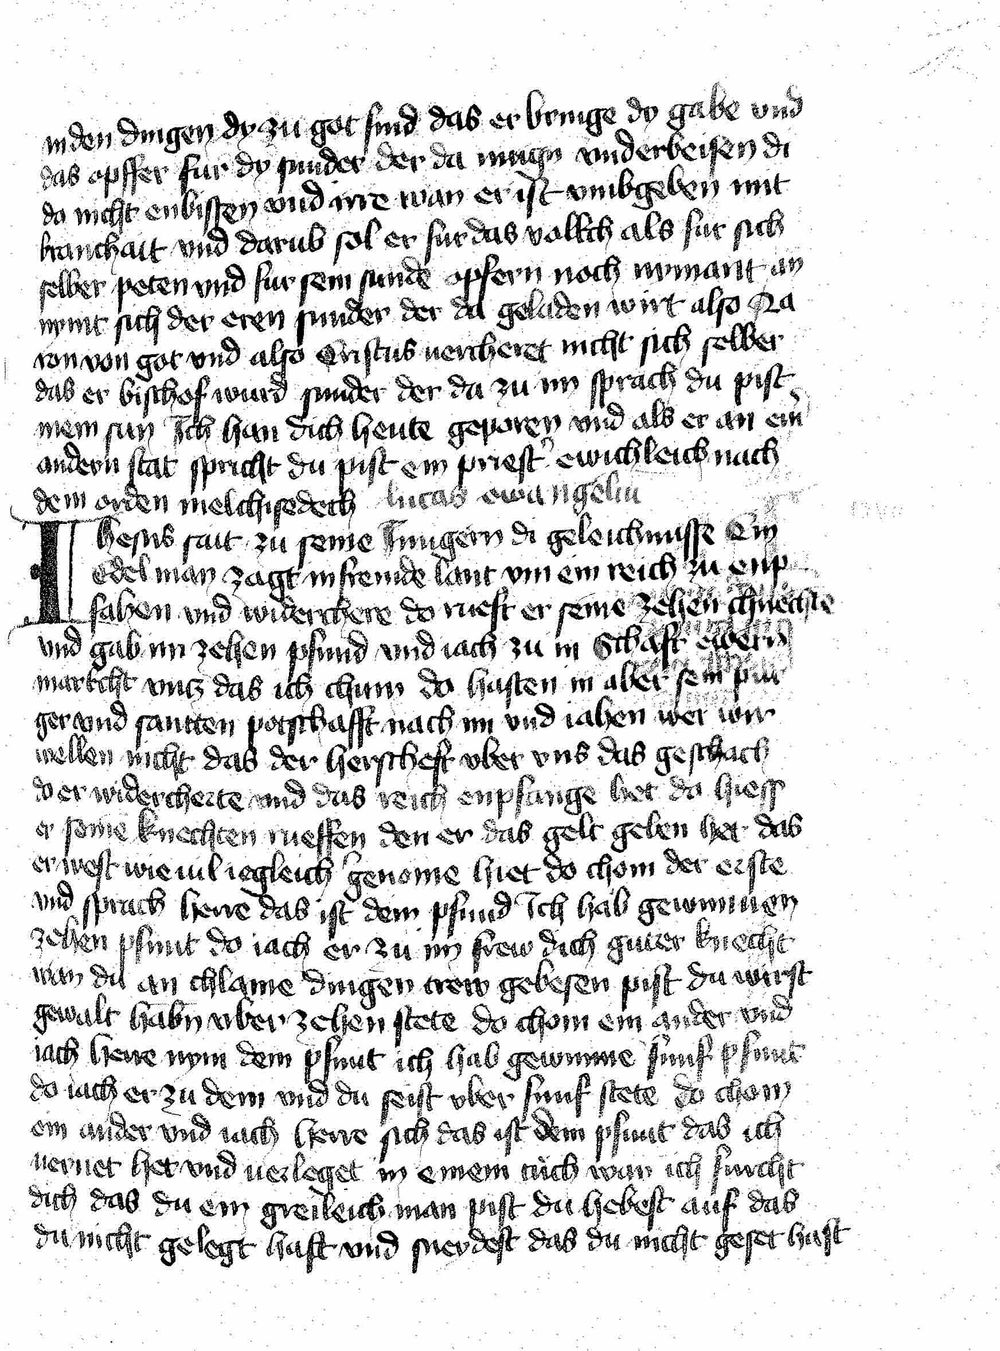 in den dingen dy zu got sind das er bringe dy gabe vnd
das opffer fur dy sunder der da mugn vnderbeisen di
do nicht enbissen vnd irre wan er ist vmbgeben mit
kranchait vnd darub sol er fur das volkch als fur sich
selber peten vnd fur sein sunde opfern noch nymant an
nymt sich der eren sunder der da geladen wirt also Aa
ron von got vnd also Cristus vercheret nicht sich selber
das er bischof wurd sunder der da zu im sprach du pist
mein sun Ich han dich heute geporen vnd als er an ein
andern stat spricht du pist ein priest ewichleich nach
dem orden melchisedech lucas ewangeliu
Ihesus sait zu seine Iungern di geleichnusse Ein
Edel man zagt in fremde lant vm ein reich zu enp
fahen vnd widerchere do rueft er seine zehen chnechte
vnd gab im zehen pfund vnd iach zu in Schaft ewern
markcht vntz das ich chum do hasten in aber sein pur
ger vnd santten potschafft nach im vnd iahen wer wir
wellen nicht das der herscheft vber vns das geschach
do er widercherte vnd das reich enpfange het do hiess
er seine knechten rueffen den er das gelt geben het das
er west wie uil iegleich genome hiet do chom der erste
vnd sprach herre das ist dein pfund Ich hab gewunnen
zehen pfunt do iach er zu im frew dich guter knecht
wan du an chlaine dingen trew gebesen pist du wirst
gewalt habn vber zehen stete do chom ein ander vnd
iach herre nym dein pfunt ich hab gewunne funf pfunt
do iach er zu dem vnd du seist vber funf stete do chom
ein ander vnd iach herre sich das ist dein pfunt das ich
uernet het vnd uerleget in einem tuch wan ich furcht
dich das du ein greileich man pist du hebest auf das
du nicht gelegt hast vnd snerdest das du nicht geset hast